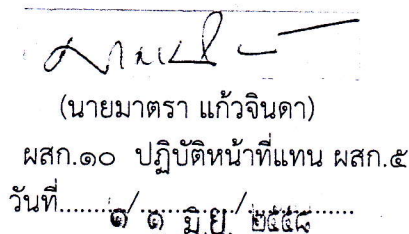 (นายมาตรา แก้วจินดา)
ผสก.๑๐ ปฏิบัติหน้าที่แทน ผสก.๕
วันที่......../........./.........
๑ มิ.ย. ๒๕๕๘